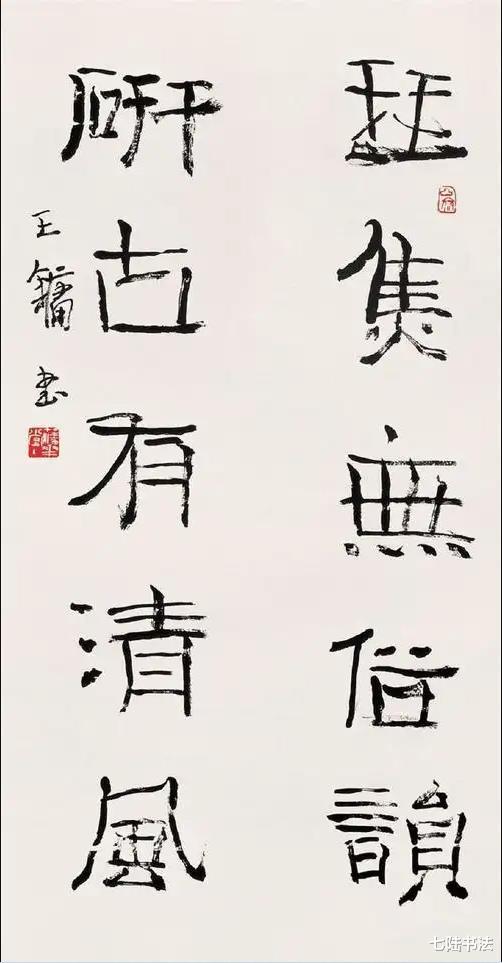 琴無俗韻
研古有清風
王鏞書
七陆书法